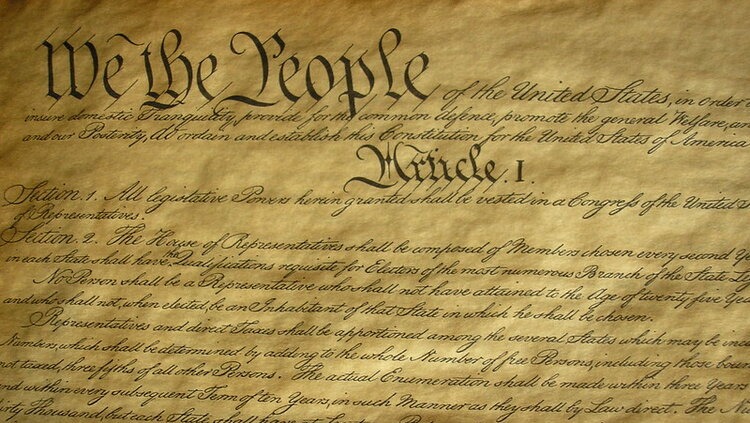 We the People of the United States, in order
insure domestic Tranquility, provide for the common defence, promote the general Welfare, an
and our Posterity, do ordain and establish this Constitution for the United States of America
Article. I.
Section. 1. All legislative Powers herein granted shall be vested in a Congress of the United S
of Representatives.
Section. 2. The House of Representatives shall be composed of Members chosen every second Ye
in each State shall have the Qualifications requisite for Electors of the most numerous Branch of the State Le
No Person shall be a Representative who shall not have attained to the Age of twenty five Yea
and who shall not, when elected, be an Inhabitant of that State in which he shall be chosen.
Representatives and direct Taxes shall be apportioned among the several States which may be inclu
Numbers, which shall be determined by adding to the whole Number of free Persons, including those boun
not taxed, three fifths of all other Persons. The actual Enumeration shall be made within three Years
and within every subsequent Term of ten Years, in such Manner as they shall by Law direct. The Nu
hirty Thousand, but each State shall have at Least